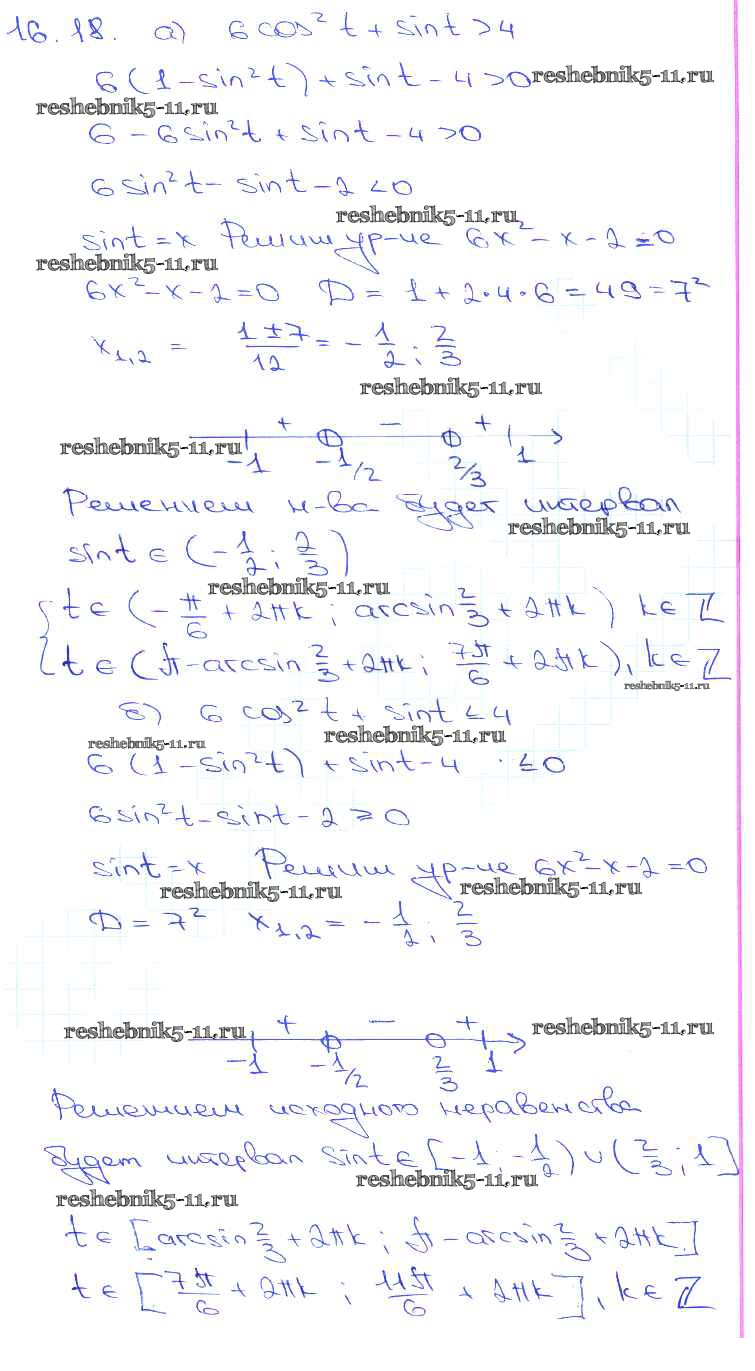 16.18. а) 6cos²t + sint > 4
6(1 - sin²t) + sint - 4 > 0 reshebnik5-11.ru
reshebnik5-11.ru
6 - 6sin²t + sint - 4 > 0
6sin²t - sint - 2 < 0
reshebnik5-11.ru
sint = x Решим ур-ие 6x² - x - 2 = 0
reshebnik5-11.ru
6x² - x - 2 = 0 D = 1 + 2·4·6 = 49 = 7²
x₁,₂ = (1 ± 7)/12 = -1/2; 2/3
reshebnik5-11.ru
+ - +
reshebnik5-11.ru
-1 -1/2 2/3 1
Решением н-ва будет интервал
reshebnik5-11.ru
sint ∈ (-1/2; 2/3)
reshebnik5-11.ru
{ t ∈ (-π/6 + 2πk; arcsin 2/3 + 2πk) k ∈ Z
t ∈ (π - arcsin 2/3 + 2πk; 7π/6 + 2πk), k ∈ Z
reshebnik5-11.ru
б) 6cos²t + sint < 4
reshebnik5-11.ru reshebnik5-11.ru
6(1 - sin²t) + sint - 4 ≤ 0
6sin²t - sint - 2 ≥ 0
sint = x Решим ур-ие 6x² - x - 2 = 0
reshebnik5-11.ru reshebnik5-11.ru
D = 7² x₁,₂ = -1/2; 2/3
+ - +
reshebnik5-11.ru reshebnik5-11.ru
-1 -1/2 2/3 1
Решением исходного неравенства
будет интервал sint ∈ [-1; -1/2) ∪ (2/3; 1]
reshebnik5-11.ru
reshebnik5-11.ru
t ∈ [arcsin 2/3 + 2πk; π - arcsin 2/3 + 2πk]
t ∈ [7π/6 + 2πk; 11π/6 + 2πk], k ∈ Z